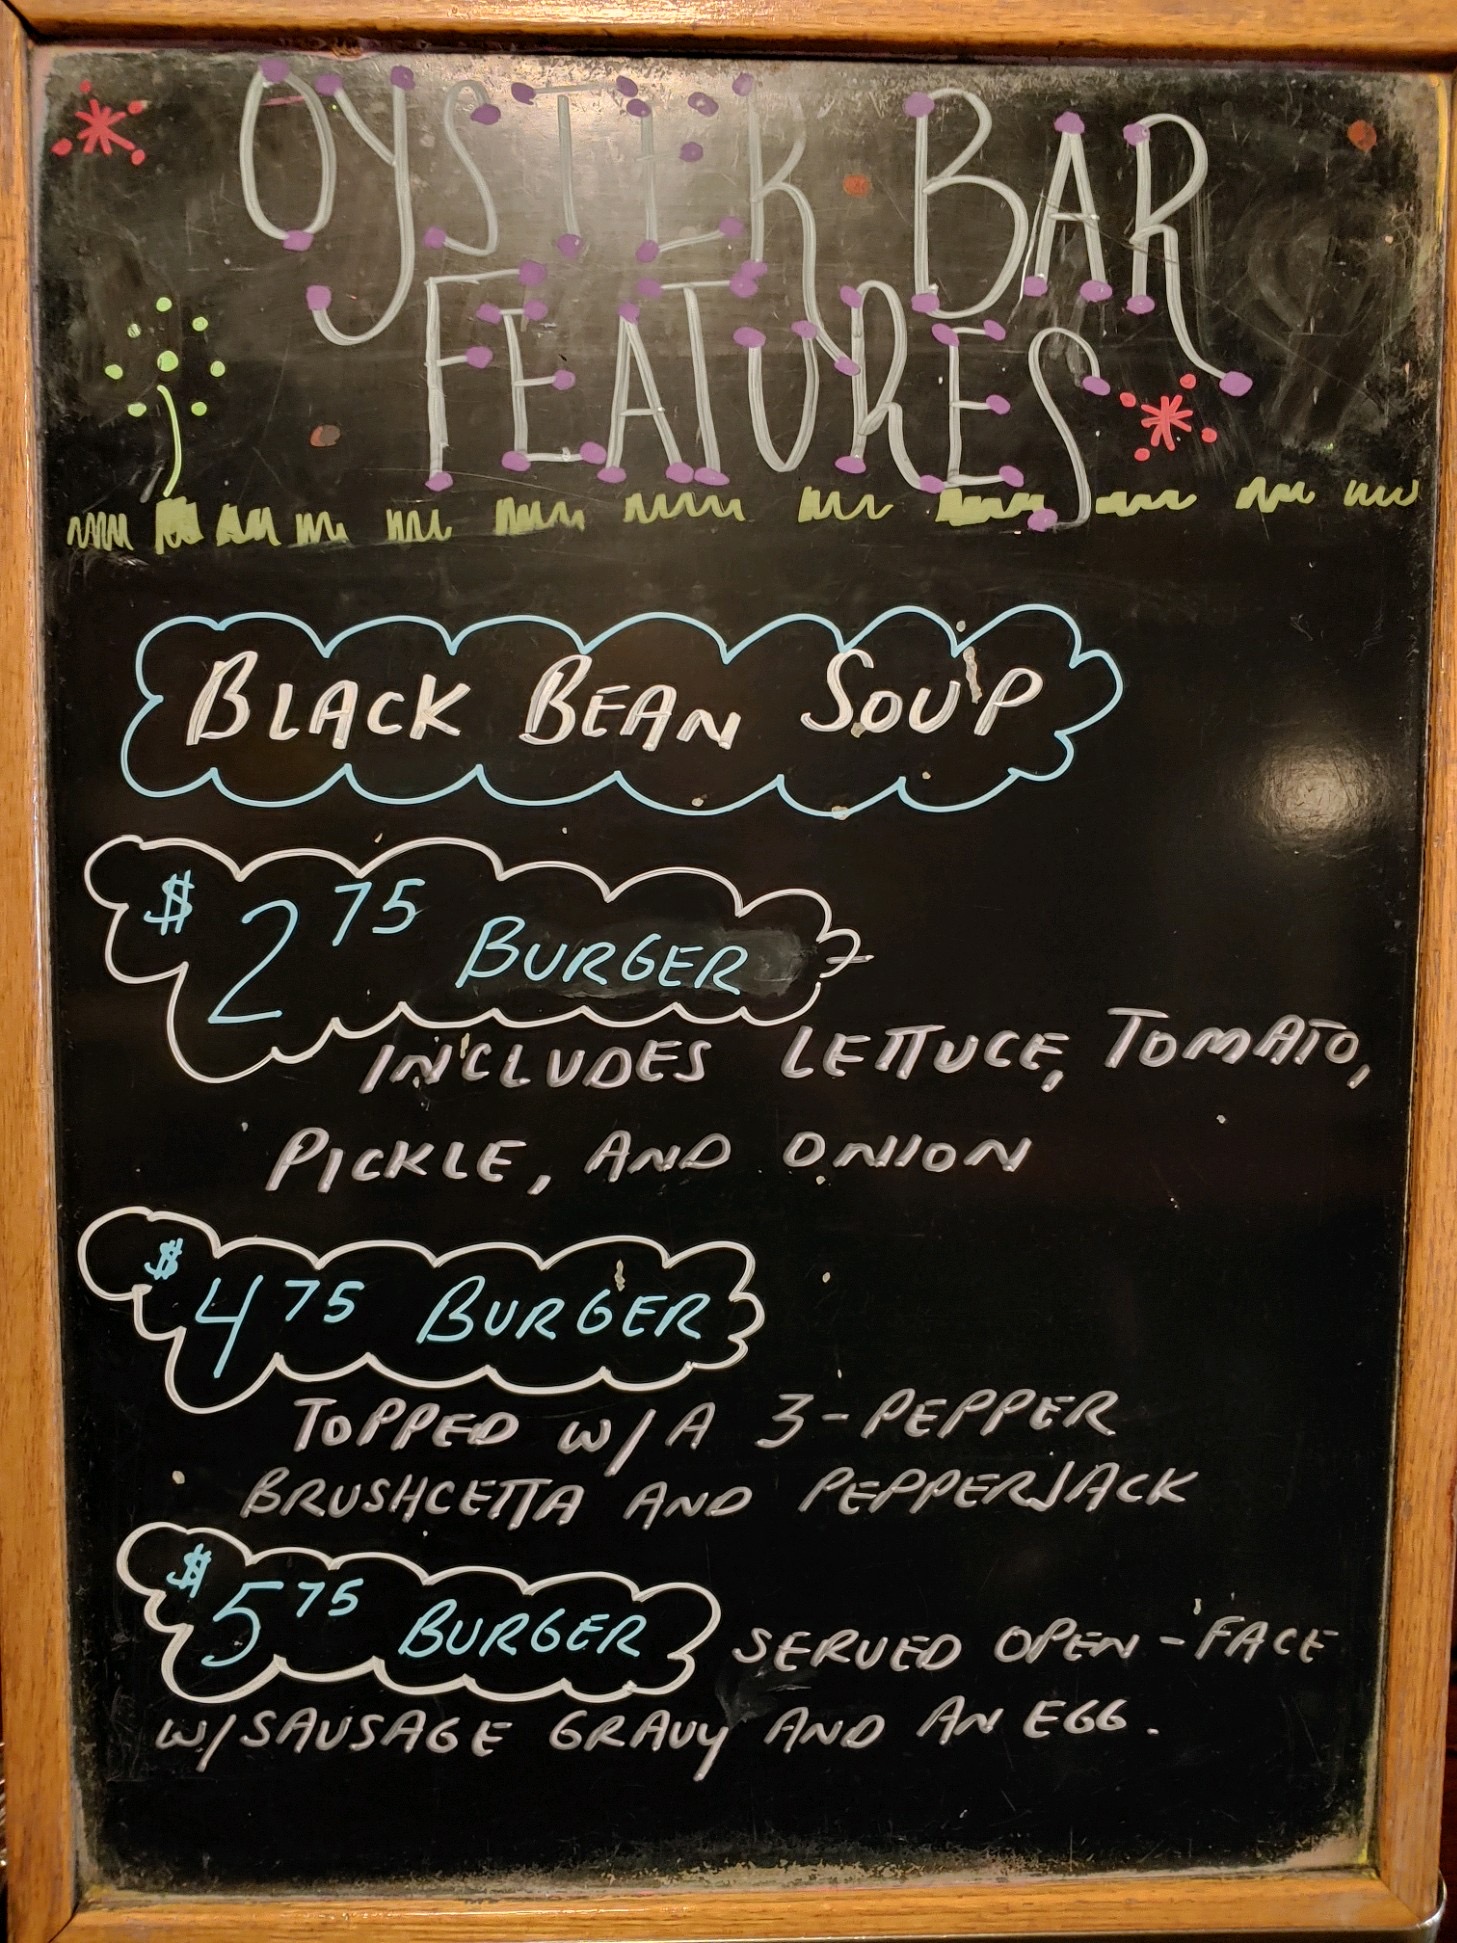 OYSTER BAR
FEATURES
BLACK BEAN SOUP
$2 75 BURGER
INCLUDES LETTUCE, TOMATO,
PICKLE, AND ONION
$4 75 BURGER
TOPPED W/A 3-PEPPER
BRUSHCETTA AND PEPPERJACK
$5 75 BURGER SERVED OPEN-FACE
W/SAUSAGE GRAVY AND AN EGG.